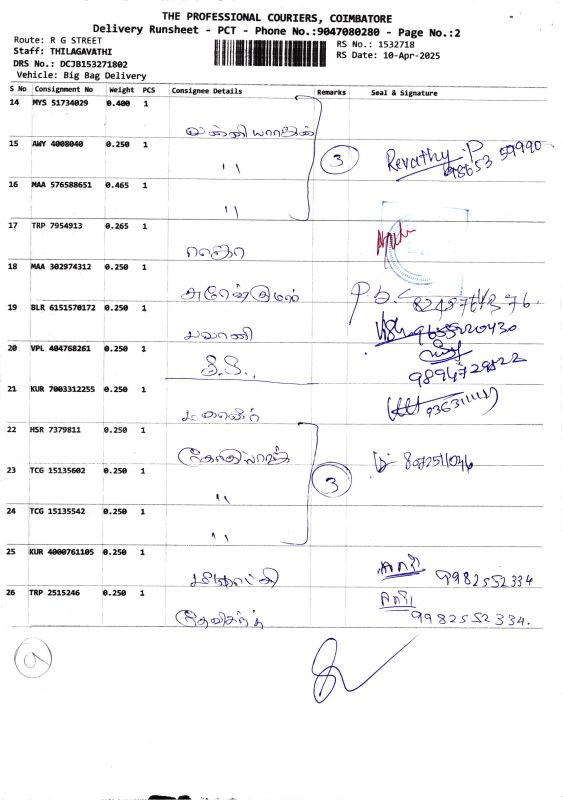 THE PROFESSIONAL COURIERS, COIMBATORE
Delivery Runsheet - PCT - Phone No.:9047080280 - Page No.:2
Route: R G STREET
RS No.: 1532718
Staff: THILAGAVATHI
RS Date: 10-Apr-2025
DRS No.: DCJB153271802
Vehicle: Big Bag Delivery
S No Consignment No Weight PCS Consignee Details Remarks Seal & Signature
14 MYS 51734029 0.400 1
15 AWY 4008040 0.250 1 " 3 Revathy.P 98653 59990
16 MAA 576588651 0.465 1 "
17 TRP 7954913 0.265 1
18 MAA 302974312 0.250 1
19 BLR 6151570172 0.250 1 பவானி 9655520430
20 VPL 404768261 0.250 1
21 KUR 7003312255 0.250 1
22 HSR 7379811 0.250 1 8072511046
23 TCG 15135602 0.250 1 " 3
24 TCG 15135542 0.250 1 "
25 KUR 4000761105 0.250 1 மீனாட்சி 9982552334
26 TRP 2515246 0.250 1 9982552334.
9